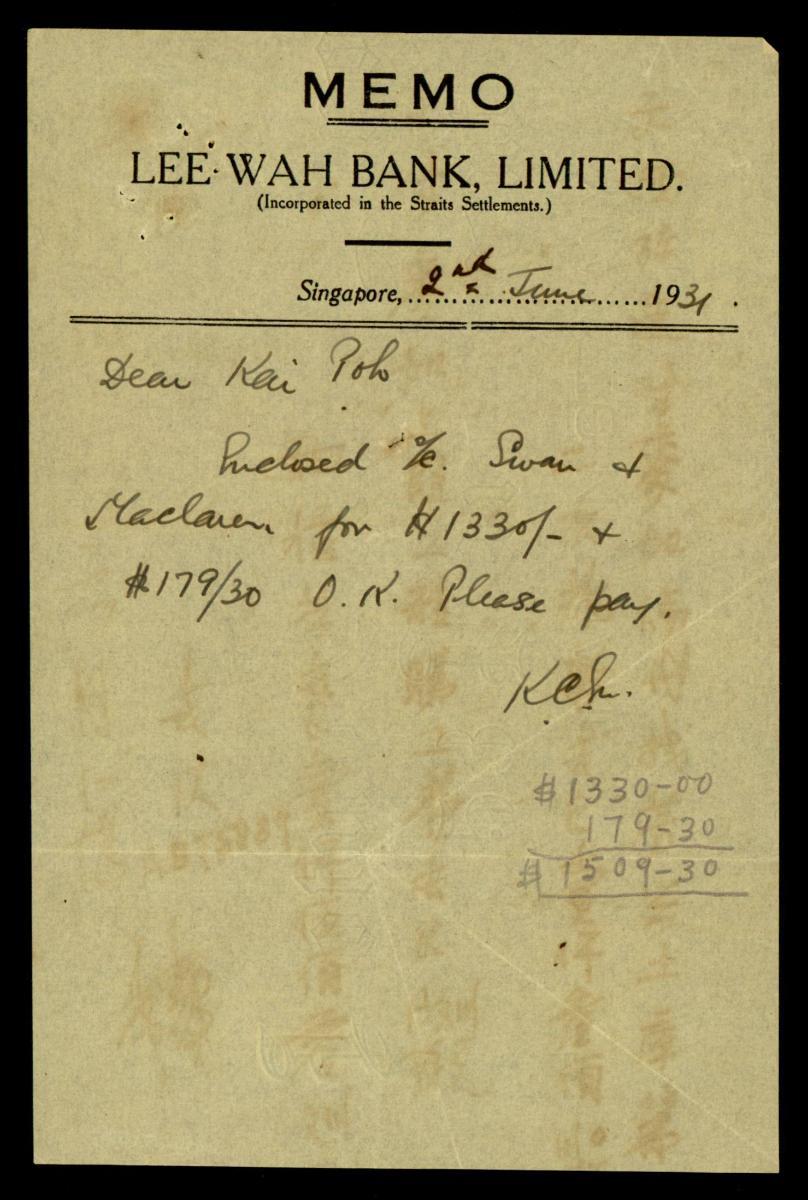 MEMO
LEE WAH BANK, LIMITED.
(Incorporated in the Straits Settlements.)
Singapore, 2nd June 1931.
Dear Kai Poh
Enclosed a/c. Swan &
Maclaren for $1330/- &
$179/30 O.K. Please pay.
$1330-00
179-30
$1509-30